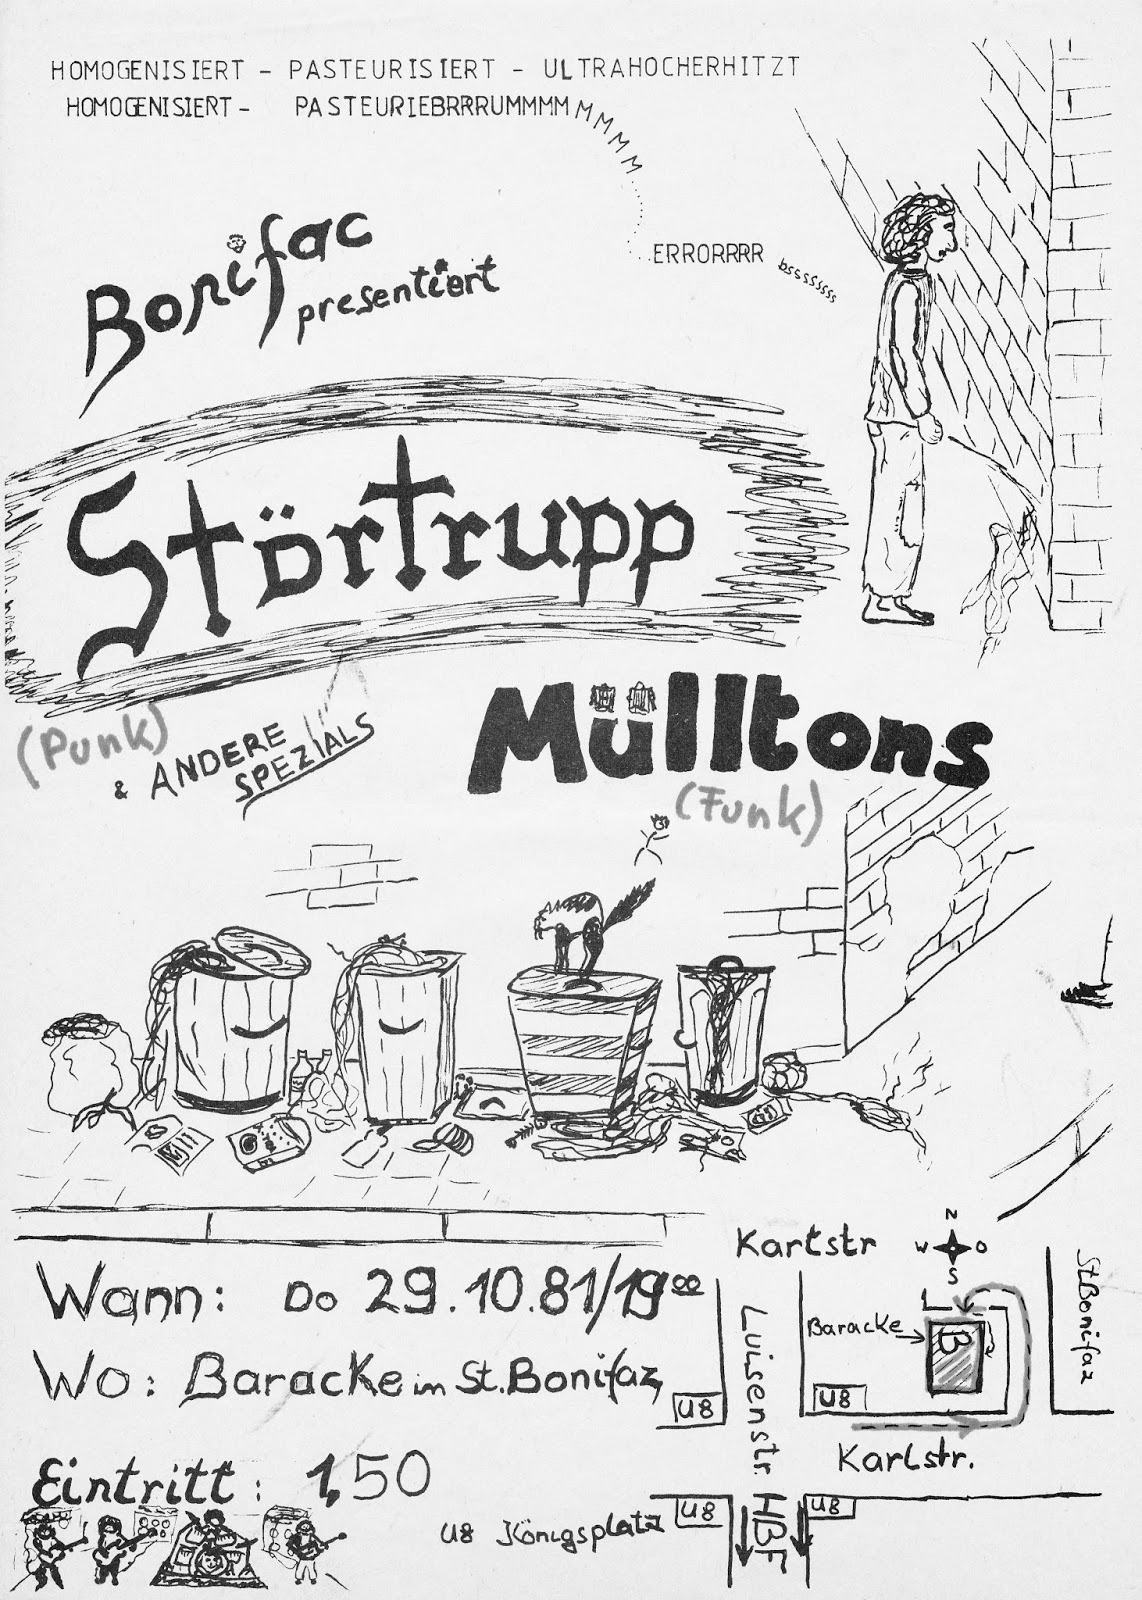 HOMOGENISIERT - PASTEURISIERT - ULTRAHOCHERHITZT
HOMOGENISIERT - PASTEURIEBRRRUMMMMMMMMM.......
.....ERRORRRR bssssssss
Bonifac
presentiert
Störtrupp
(Punk)
& ANDERE
SPEZIALS
Mülltons
(Funk)
Wann: Do 29.10.81/19⁰⁰
Wo: Baracke im St. Bonifaz,
Eintritt: 1,50
Karlstr
N
W O
S
Luisenstr.
Baracke
B
St. Bonifaz
U8
U8
Karlstr.
U8 Königsplatz
U8
U8
HBF